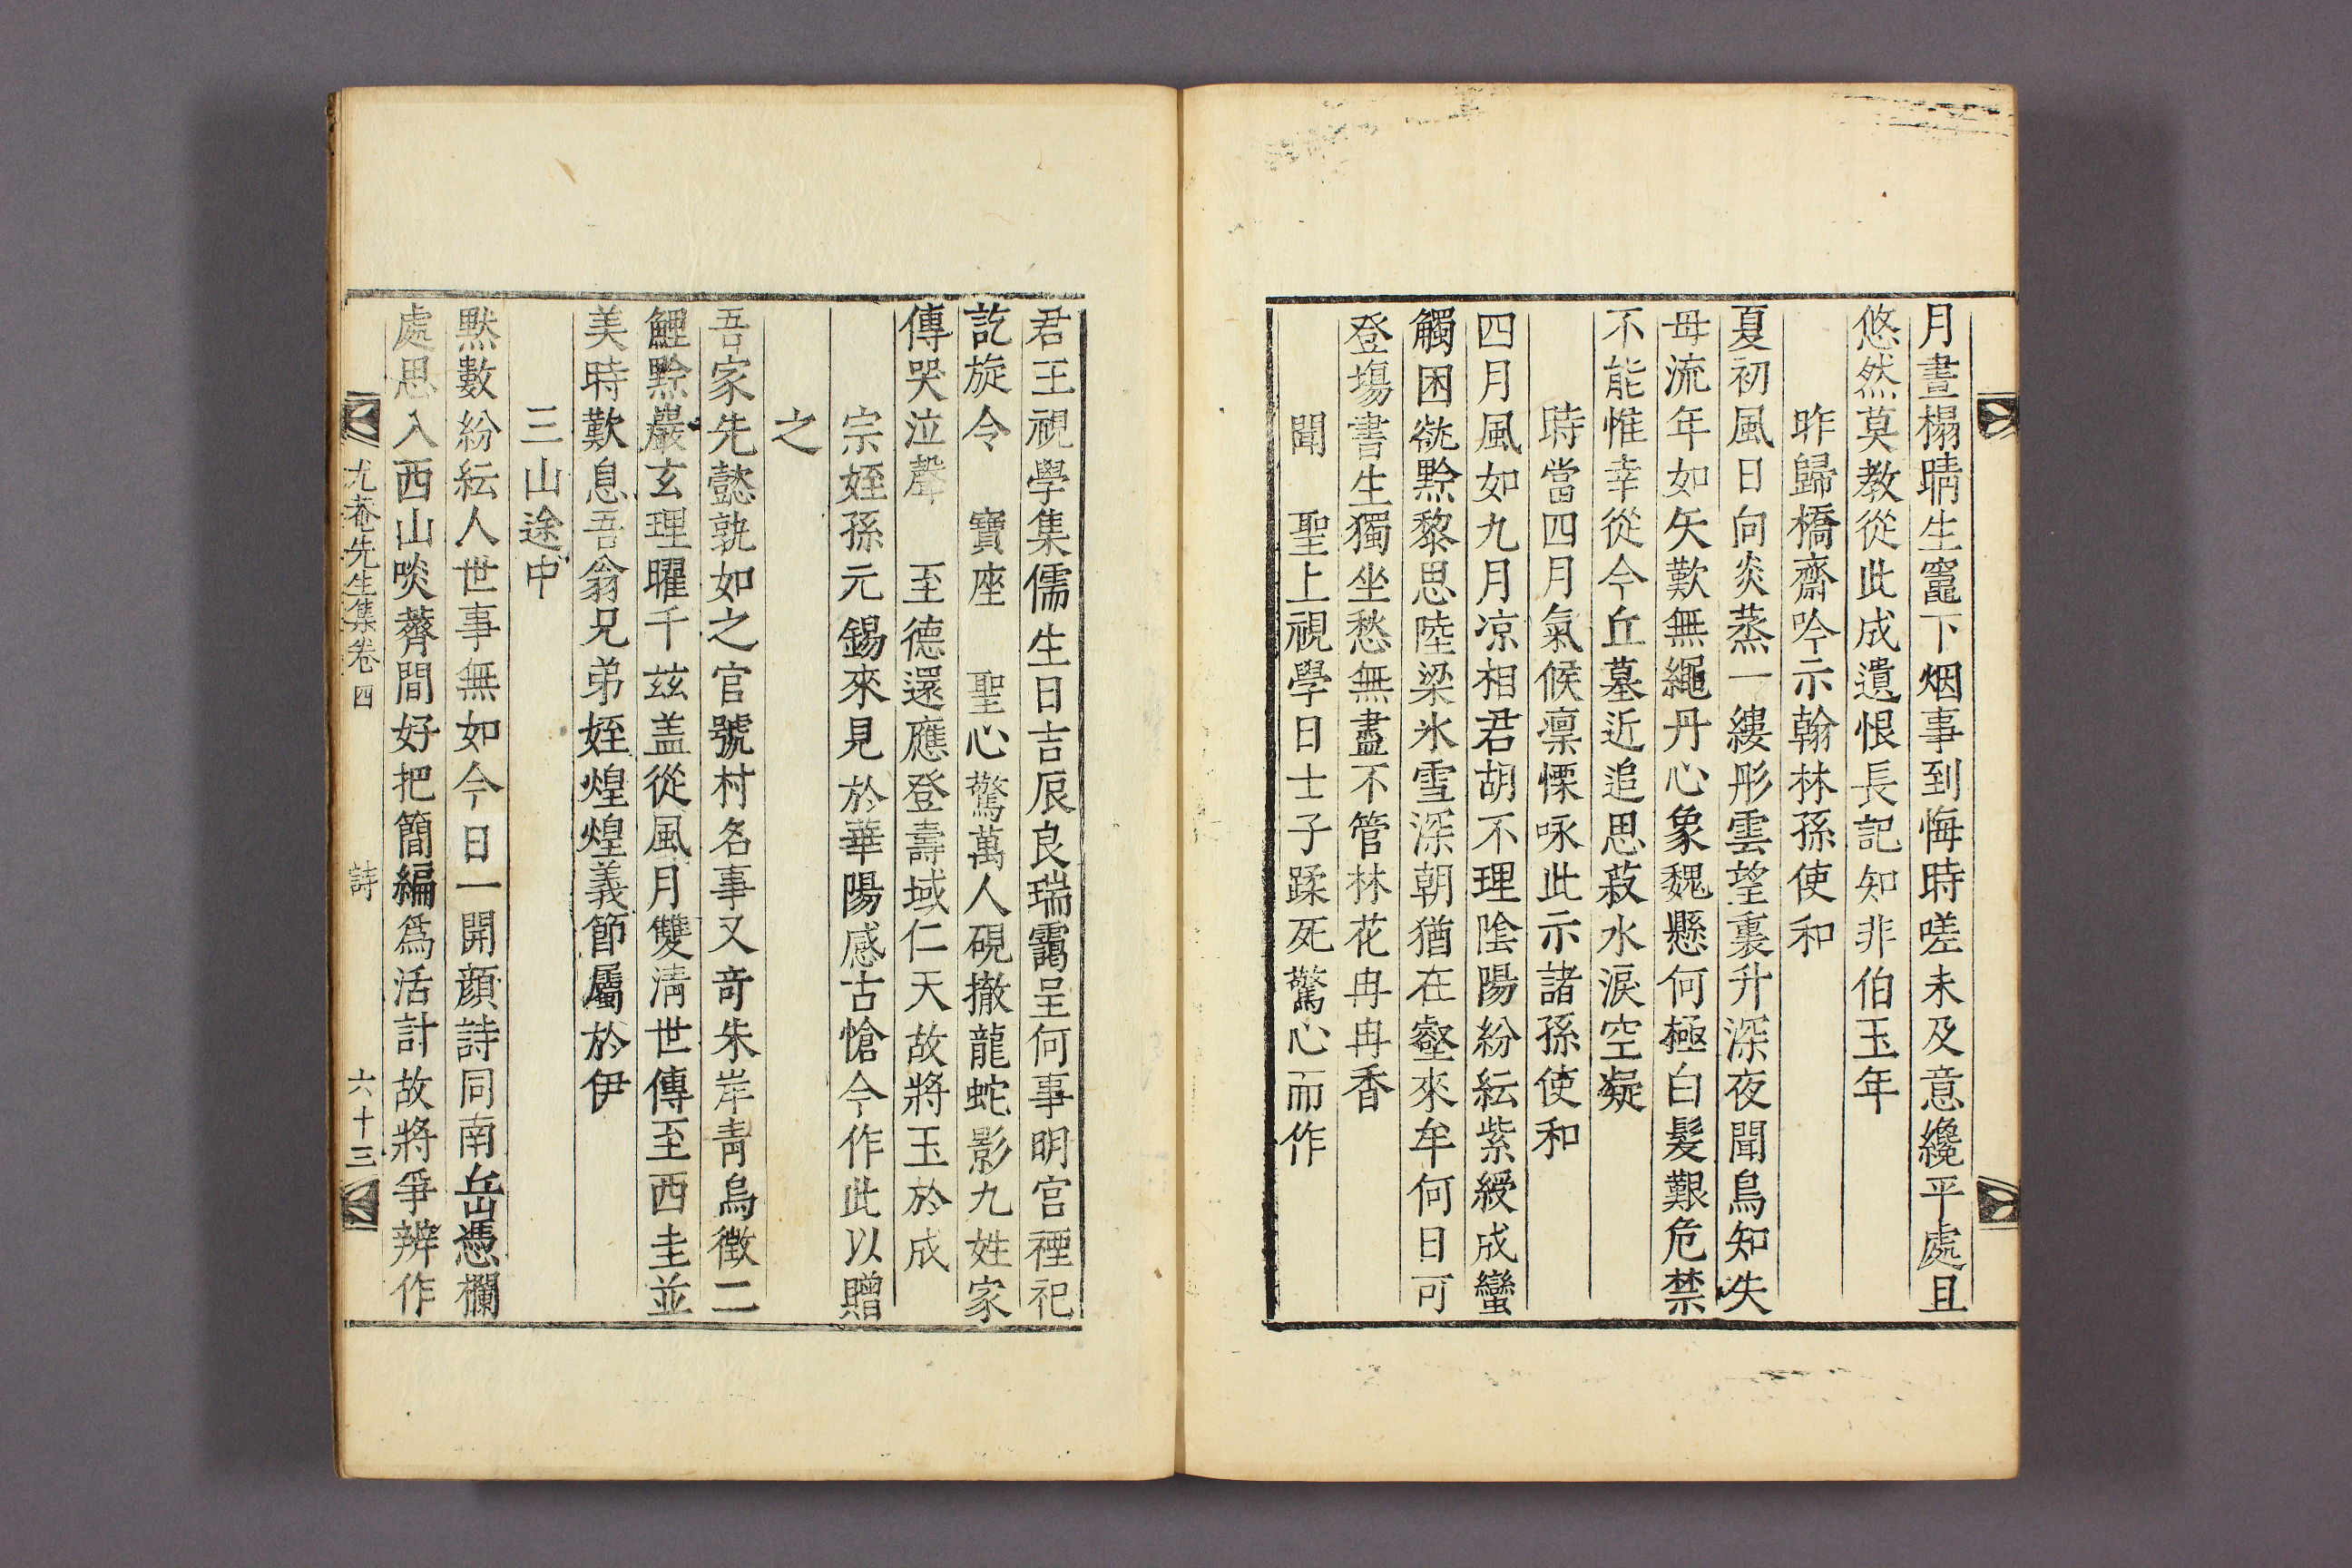 月晝榻晴生竈下烟事到悔時嗟未及意纔平處且
悠然莫教從此成遺恨長記知非伯玉年
昨歸橋齋吟示翰林孫使和
夏初風日向炎蒸一縷彤雲望裏升深夜聞鳥知失
母流年如矢歎無繩丹心象魏懸何極白髮艱危禁
不能惟幸從今丘墓近追思菽水淚空凝
時當四月氣候凛慄咏此示諸孫使和
四月風如九月凉相君胡不理陰陽紛紜紫綬成蠻
觸困㒃黥黎思陸梁氷雪深朝猶在壑來牟何日可
登塲書生獨坐愁無盡不管林花冉冉香
聞　聖上視學日士子蹂死驚心而作
君王視學集儒生日吉辰良瑞靄呈何事明宮禋祀
訖旋令　寶座　聖心驚萬人硯撤龍蛇影九姓家
傳哭泣聲　至德還應登壽域仁天故將玉於成
宗姪孫元錫來見於華陽感古愴今作此以贈
之
吾家先懿孰如之官號村名事又奇朱岸青烏徵二
鯉黥巖玄理曜千玆盖從風月雙淸世傳至西圭並
美時歎息吾翁兄弟姪煌煌義節屬於伊
三山途中
默數紛紜人世事無如今日一開顔詩同南岳憑欄
處思入西山啖薺間好把簡編爲活計故將爭辨作
尤菴先生集卷四　詩　六十三